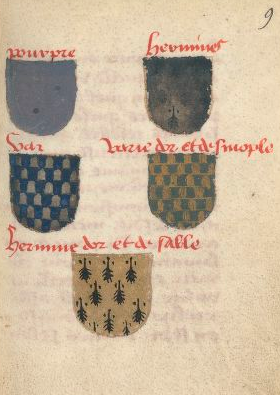 9
pourpre hermines
Vair Varie dor et de sinople
hermine dor et de sable